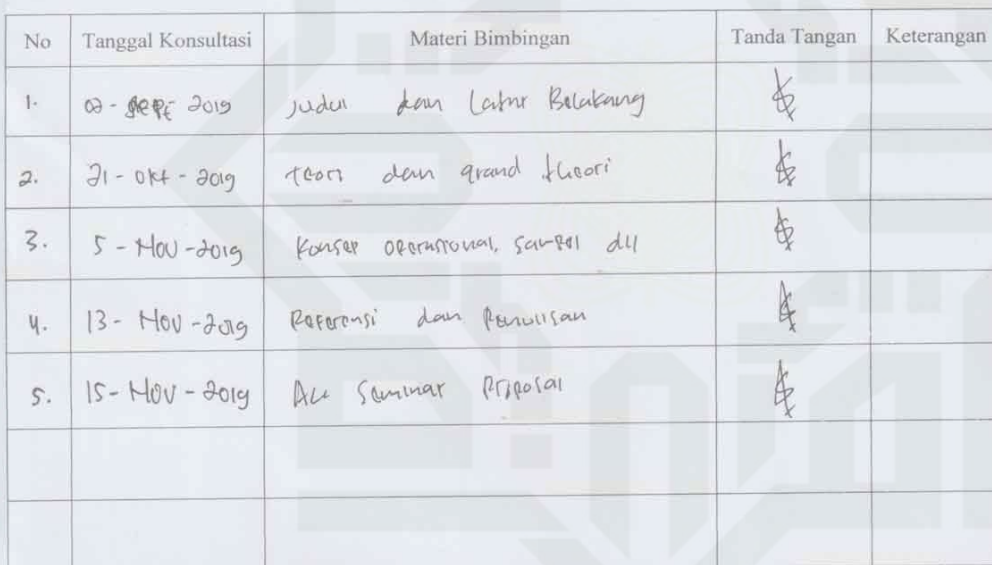 No Tanggal Konsultasi Materi Bimbingan Tanda Tangan Keterangan
1. 02 - SEPT 2019 Judul dan Latar Belakang
2. 21 - Okt - 2019 teori dan grand theori
3. 5 - Nov - 2019 Konsep operasional, sampel dll
4. 13 - Nov - 2019 Referensi dan Penulisan
5. 15 - Nov - 2019 Acc Seminar Proposal